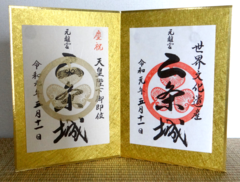 世界文化遺産
元離宮
二条城
令和元年五月十一日
慶祝
天皇陛下御即位
元離宮
二条城
令和元年五月十一日